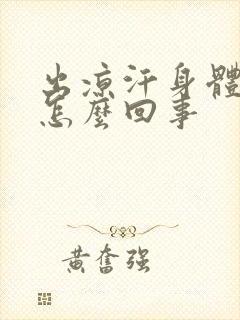 出凉汗身體
怎麼回事
黄奮强